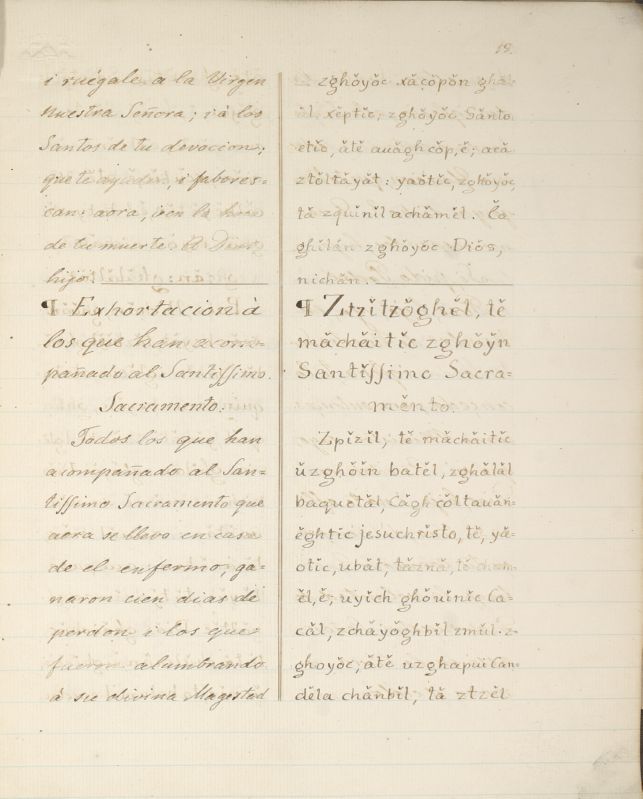 19.
i ruégale a la Virgen
nuestra Señora; i á los
Santos de tu devocion;
que te ayuden, i fabores=
can: aora, i en la hora
de tu muerte. A Dios
hijo.
¶ Exhortacion á
los que han acom=
pañado al Santissimo.
Sacramento.
Todos los que han
acompañado al San=
tissimo Sacramento que
aora se llevo en casa
de el enfermo, ga=
naron cien dias de
perdon i los que
fueron alumbrando
á su divina Magestad
zghŏyŏc xăcŏpŏn
xĕptic; zghŏyŏc Sănto
etic, ătĕ auăghcŏp, ĕ; acă
ztŏltăyăt: yaŏtic, zghŏyŏc,
tă zquĭnĭl achămĕl.
ghĭlăn zghŏyŏc Diŏs,
nichăn.
¶ Ztzĭtzŏghĕl, tĕ
măchăitĭc zghŏyŏn
Săntĭssĭmo Sacra=
mĕnto
Zpĭzĭl, tĕ măchăitĭc
ŭzghŏĭn batĕl, zghălăl
baquetăl, Căgh cŏltauăn=
ĕghtic jesuchrĭsto, tĕ, yă=
otĭc, ubăt,
ĕl, ĕ; uyĭch ghŏuĭnĭc Ca=
căl, zchăyŏghbĭl zmŭl. z=
ghoyŏc, ătĕ ŭzghapuĭ Can=
dĕla chănbĭl, tă ztzĕl